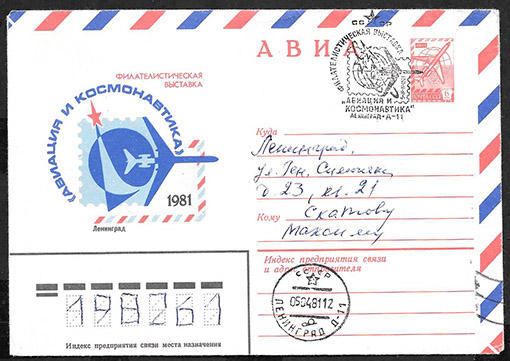 СССР
АВИА
ФИЛАТЕЛИСТИЧЕСКАЯ ВЫСТАВКА
"АВИАЦИЯ И
КОСМОНАВТИКА"
ЛЕНИНГРАД-Д-11
ФИЛАТЕЛИСТИЧЕСКАЯ
ВЫСТАВКА
«АВИАЦИЯ И КОСМОНАВТИКА»
1981
Ленинград
Куда
Ленинград,
ул. Ген.
д. 23, кв. 21
Кому
Скатову
Максиму
Индекс предприятия связи
и адрес отправителя
СССР
05048112
ЛЕНИНГРАД Д-11
198261
Индекс предприятия связи места назначения